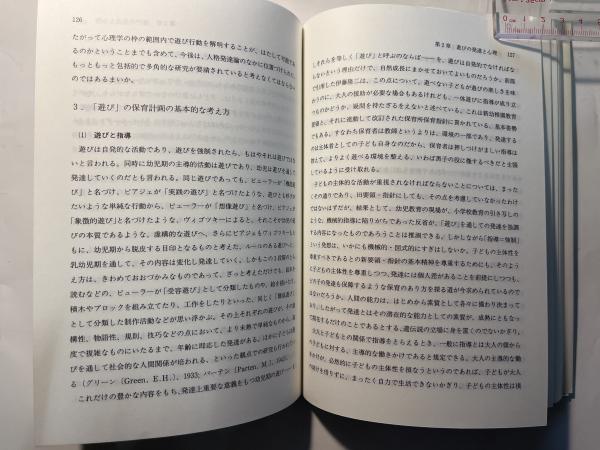 126
たがって心理学の枠の範囲内で遊び行動を解明することが、はたして可能であ
るのかということまでも含めて、今後は、人格発達論のなかに位置づけしたり、
もっともっと包括的で多角的な研究が要請されていると考えなくてはならない
のではあるまいか。
3.「遊び」の保育計画の基本的な考え方
(1) 遊びと指導
遊びは自発的な活動であり、遊びを強制されたら、もはやそれは遊びではな
いと言われる。同時に幼児期の主導的活動は遊びであり、幼児は遊びを通して
発達していくのだとも言われる。同じ遊びであっても、ビューラーが「機能遊
び」と名づけ、ピアジェが「実践の遊び」と名づけたような、遊びとも呼びが
たいような単純な行動から、ビューラーが「想像遊び」と名づけ、ピアジェが
「象徴的遊び」と名づけたような、ヴィゴツキーによると、それこそが幼児の遊
びの本質であるような、虚構的な遊びへ、さらにピアジェもヴィゴツキーも
もに、幼児期から脱皮する目印となるものと考えた、ルールのある遊びへと、
乳幼児期を通して、その内容は変化し発達していく。しかもこの3段階の
え方は、きわめておおづかみなものであって、ざっと考えただけでも、絵本を
読むなどの、ビューラーが「受容遊び」として分類したものや、絵を描いたり、
積木やブロックを組み立てたり、工作をしたりといった、同じく「構成遊び」
として分類した制作活動などが思い浮かぶ。その上それぞれの遊びが、その虚
構性、物語性、規則、技巧などの点において、より未熟で単純なものから、高
度で複雑なものにいたるまで、年齢に即応した発達がある。はたまた子どもが
びを通して社会的な人間関係が培われる、といった観点での研究も行われてい
る (グリーン〔Green, E.H.〕, 1933; パーテン〔Parten, M.〕,
これだけの豊かな内容をもち、発達上重要な意義をもつ幼児期の遊び
第2章 遊びの発達と心理 127
しそれらを等しく「遊び」と呼ぶのならば──を、遊びは自発的でなければな
らないという理由だけで、自然成長にまかせておいてよいものだろうか。前面
の中で伊藤隆二は、この点について、遊べない子どもが遊びの楽しさを味
わうのに、大人の援助が必要な場合もあるけれども、一体遊びに指導が成り立
つものかどうか、疑問を持たざるをえないと述べている。これは新幼稚園教育
要領と、それに連動して改訂された保育所保育指針に貫かれている、基本姿勢
でもある。すなわち保育者は教師というよりは、環境の一部であり、発達する
のは主体としての子ども自身なのだから、保育者は押しつけがましい指導より
も、よりよく遊べる環境を整える、いわば黒子の役に徹するべきだと主張
しているように受け取れる。
子どもの主体的な活動が重視されなければならないことについては、まった
くその通りであり、旧要領・指針にしても、その点を考慮していなかったわけ
ではないはずだが、結果として、幼児教育の現場が、小学校教育の引き写しの
ような、機械的指導に陥りがちであった反省が、「遊び」を通しての発達を強調
する内容になったものであろうことは推測できる。しかしながら「指導=強制」
という発想は、いかにも機械的・図式的にすぎはしないか。子どもの主体性を
尊重しようとする新要領・指針の基本精神を尊重するためにも、そのよう
な子どもの主体性を尊重しつつ、発達には個人差があることを前提にしつつも、
どの子の発達をも保障するような保育のあり方を探る道が今求められているの
ではないだろうか。人間の能力は、はじめから素質として各々に備わり決まって
おり、したがって発達とはその潜在的な能力としての素質が、成熟にともなっ
て開花するだけのことであるとする、遺伝説の立場に身を置くのでないかぎり、
大人と子どもとの関係で指導をとらえるとき、一般に指導とは大人の側から
の子どもに対する、主導的な働きかけであると規定できる。大人の主導的な働
きかけが、必然的に子どもの主体性を損なうというのであれば、子どもが大人
の助けを借りずに、まったく自力で生活できないかぎり、子どもの主体性は損